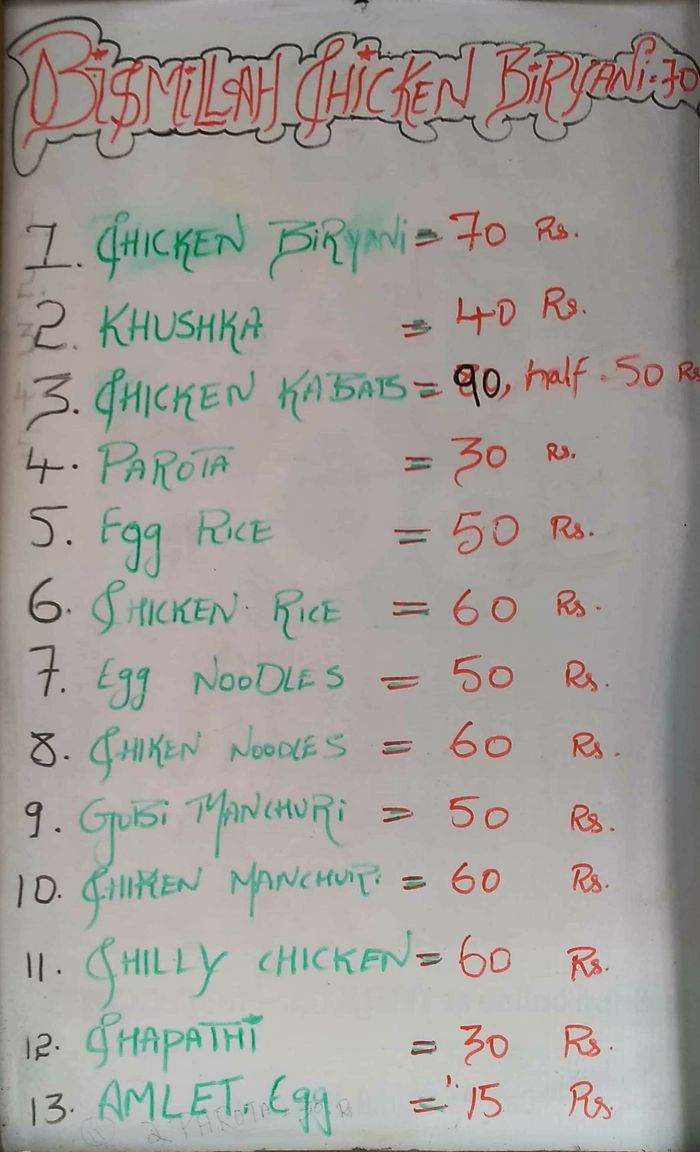 BiSMiLLAH CHiCKEN BiRYANi-70
1. CHICKEN BiRyANi = 70 Rs.
2. KHUSHKA = 40 Rs.
3. CHICKEN KABAB = 90, half - 50 Rs
4. PAROTA = 30 Rs.
5. Egg RICE = 50 Rs.
6. CHICKEN RICE = 60 Rs.
7. Egg NOODLES = 50 Rs.
8. CHIKEN NOODLES = 60 Rs.
9. GOBi MANCHURi = 50 Rs.
10. CHIKEN MANCHURi = 60 Rs.
11. CHILLY CHICKEN = 60 Rs.
12. CHAPATHI = 30 Rs.
13. AMLET. Egg = 15 Rs.